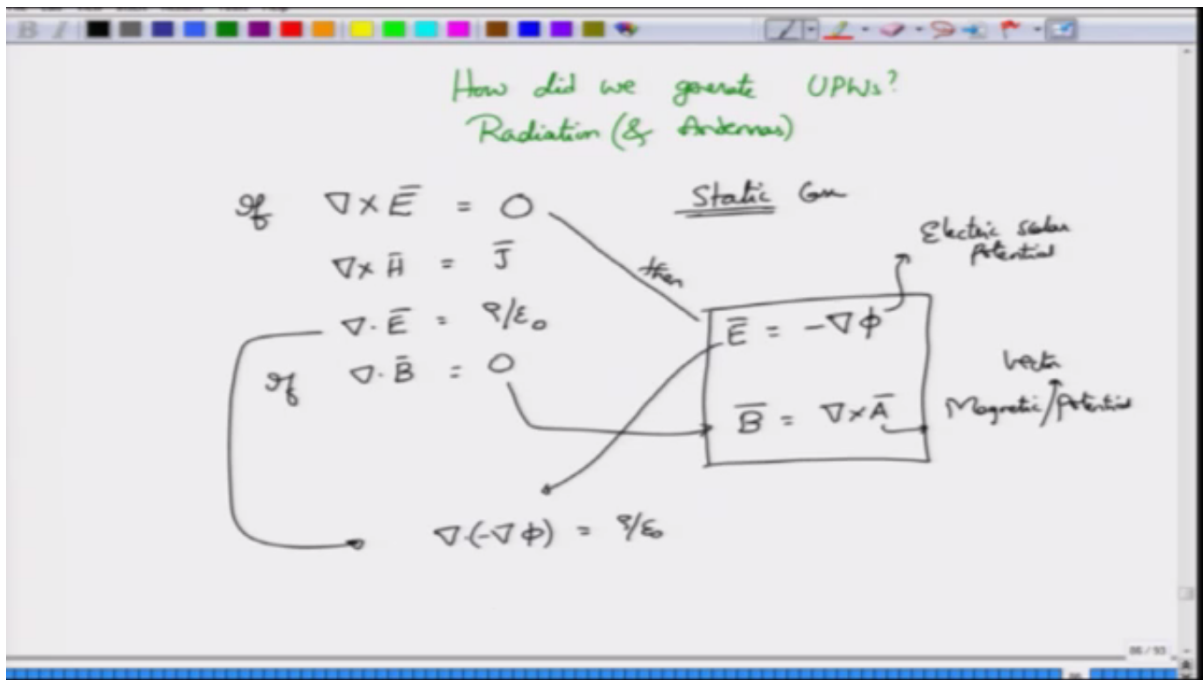 How did we generate UPWs?
Radiation (& Antennas)
If ∇×E̅ = 0
Static Case
∇×H̅ = J̅
then
Electric scalar
Potential
∇·E̅ = ρ/ε₀
E̅ = -∇φ
If ∇·B̅ = 0
Vector
B̅ = ∇×A̅
Magnetic/Potential
∇·(-∇φ) = ρ/ε₀
86/93